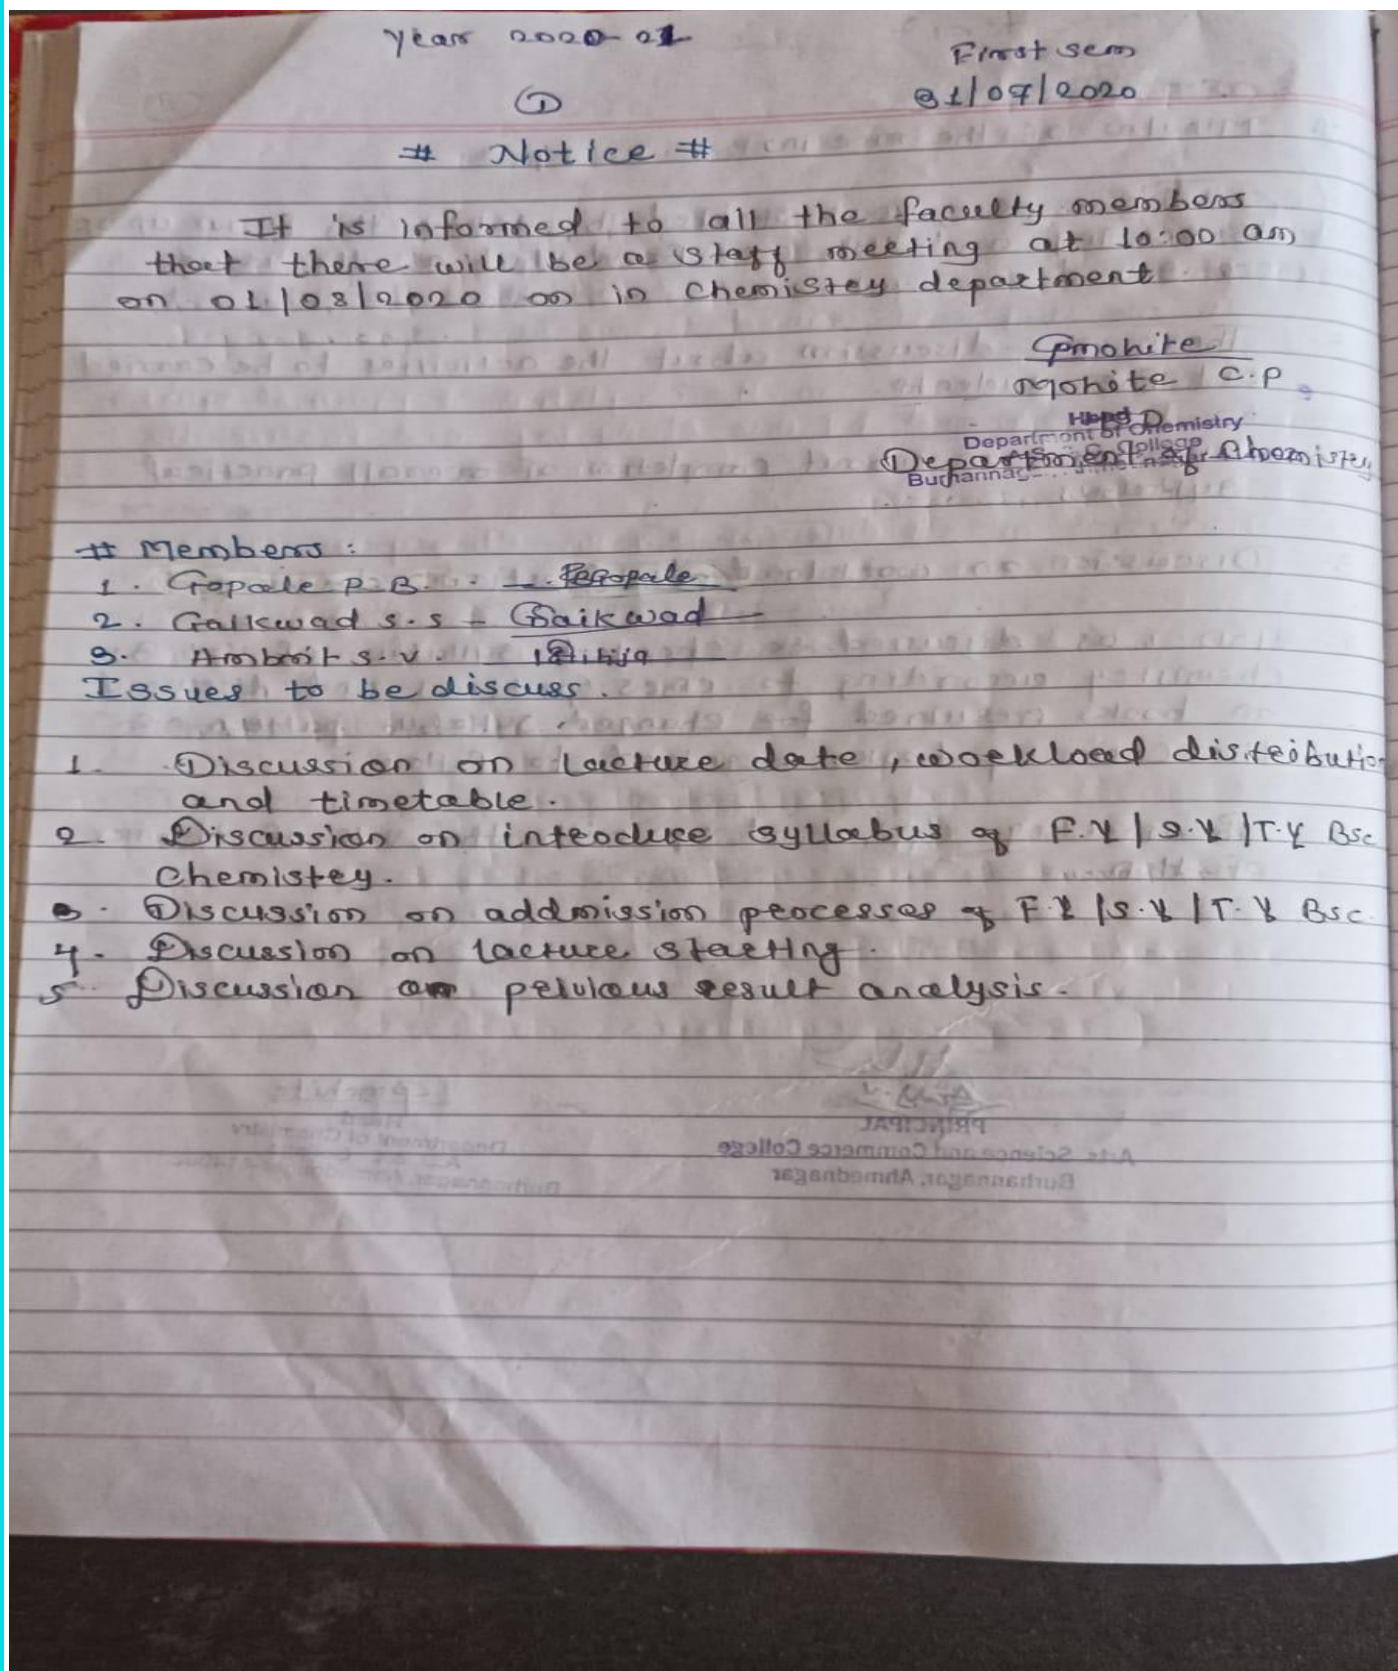 Year 2020-21
First sem
① 31/07/2020
# Notice #
It is informed to all the faculty members
that there will be a staff meeting at 10:00 am
on 01/08/2020 on in Chemistry department
Cpmohite
Mohite C.P.
Head
Department of Chemistry
Department of Chemistry
# Members :
1. Gopale P.B. - Pbgopale
2. Gaikwad S.S - Gaikwad
3. Ambrit S.V.
Issues to be discuss.
1. Discussion on lacture date, workload distribution
and timetable.
2. Discussion on introduce syllabus of F.Y / S.Y / T.Y Bsc
Chemistry.
3. Discussion on addmission processes of F.Y / S.Y / T.Y Bsc.
4. Discussion on lacture starting.
5. Discussion on pelvious result analysis.
PRINCIPAL
Arts Science and Commerce College
Burhannagar, Ahmednagar